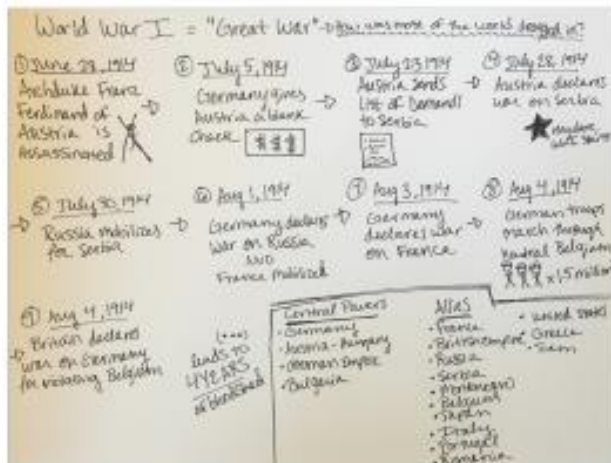 World War I = "Great War" → How was most of the world dragged in?
① June 28, 1914
Archduke Franz
Ferdinand of
Austria is
Assassinated
② July 5, 1914
Germany gives
Austria a blank
check
$ $ $
③ July 23, 1914
Austria sends
List of Demands
to Serbia
④ July 28, 1914
Austria declares
war on Serbia
⑤ July 30, 1914
Russia mobilizes
for Serbia
⑥ Aug 1, 1914
Germany declares
War on Russia
AND
France mobilized
⑦ Aug 3, 1914
Germany
declares war
on France
⑧ Aug 4, 1914
German troops
march through
neutral Belgium
x 1.5 million
⑨ Aug 4, 1914
Britain declares
war on Germany
for violating Belgium
(...)
leads to
4 YEARS
of bloodshed
Central Powers
• Germany
• Austria-Hungary
• Ottoman Empire
• Bulgaria
Allies
• France
• British empire
• Russia
• Serbia
• Montenegro
• Belgium
• Japan
• Italy
• Portugal
• Romania
• United States
• Greece
• Siam